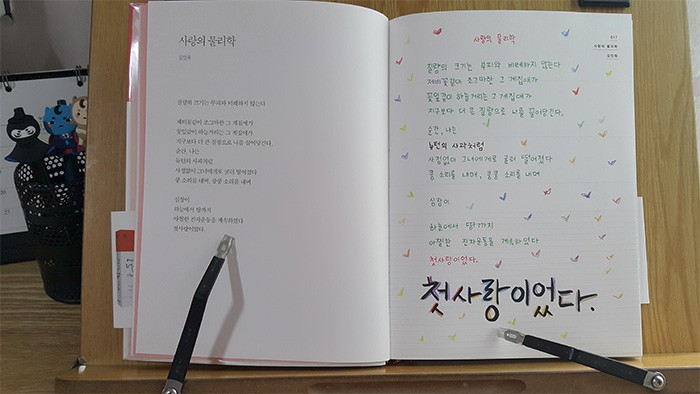 사랑의 물리학
김인육
질량의 크기는 부피와 비례하지 않는다
제비꽃같이 조그마한 그 계집애가
꽃잎같이 하늘거리는 그 계집애가
지구보다 더 큰 질량으로 나를 끌어당긴다.
순간, 나는
뉴턴의 사과처럼
사정없이 그녀에게로 굴러 떨어졌다
쿵 소리를 내며, 쿵쿵 소리를 내며
심장이
하늘에서 땅까지
아찔한 진자운동을 계속하였다
첫사랑이었다.
사랑의 물리학
017
사랑의 물리학
김인육
질량의 크기는 부피와 비례하지 않는다
제비꽃같이 조그마한 그 계집애가
꽃잎같이 하늘거리는 그 계집애가
지구보다 더 큰 질량으로 나를 끌어당긴다.
순간, 나는
뉴턴의 사과처럼
사정없이 그녀에게로 굴러 떨어졌다
쿵 소리를 내며, 쿵쿵 소리를 내며
심장이
하늘에서 땅까지
아찔한 진자운동을 계속하였다
첫사랑이었다.
첫사랑이었다.